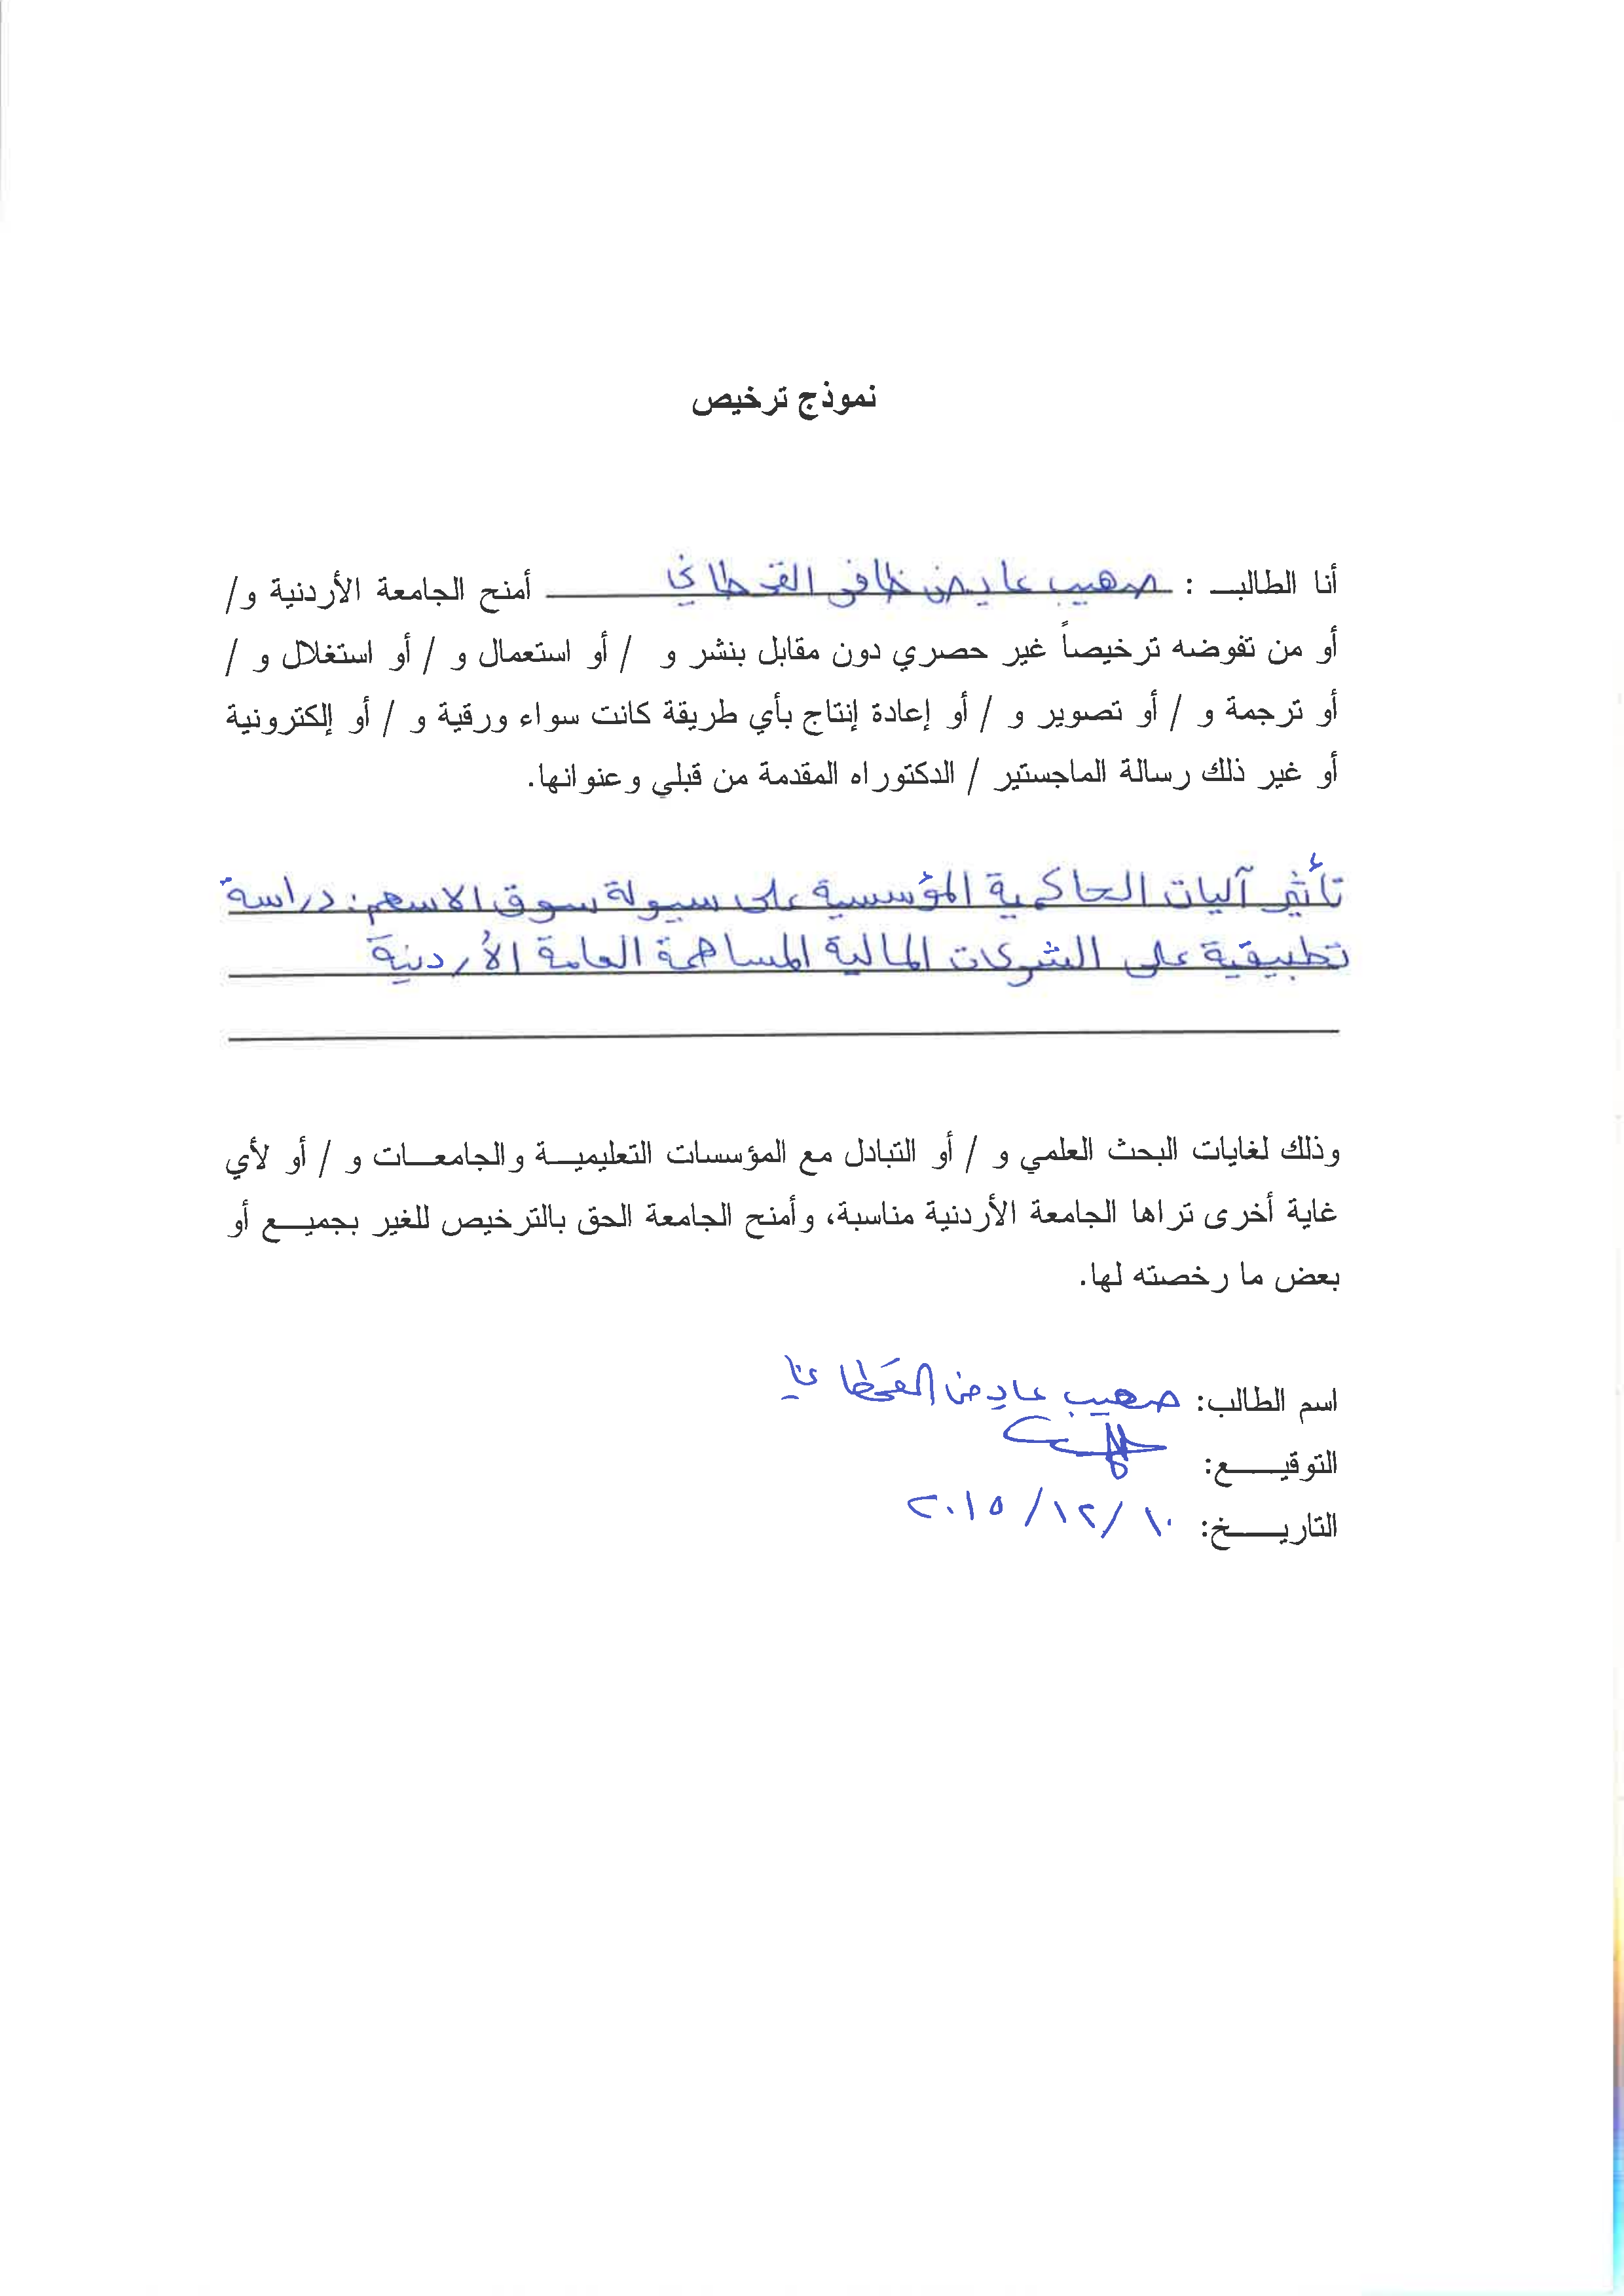 نموذج ترخيص
أنا الطالب : صهيب عايض ظافر القحطاني أمنح الجامعة الأردنية و/
أو من تفوضه ترخيصاً غير حصري دون مقابل بنشر و / أو استعمال و / أو استغلال و /
أو ترجمة و / أو تصوير و / أو إعادة إنتاج بأي طريقة كانت سواء ورقية و / أو إلكترونية
أو غير ذلك رسالة الماجستير / الدكتوراه المقدمة من قبلي وعنوانها.
تأثير آليات الحاكمية المؤسسية على سيولة سوق الاسهم: دراسة
تطبيقية على الشركات المالية المساهمة العامة الأردنية
وذلك لغايات البحث العلمي و / أو التبادل مع المؤسسات التعليمية والجامعات و / أو لأي
غاية أخرى تراها الجامعة الأردنية مناسبة، وأمنح الجامعة الحق بالترخيص للغير بجميع أو
بعض ما رخصته لها.
اسم الطالب: صهيب عايض القحطاني
التوقيع:
التاريخ: ١٠/ ١٢/ ٢٠١٥